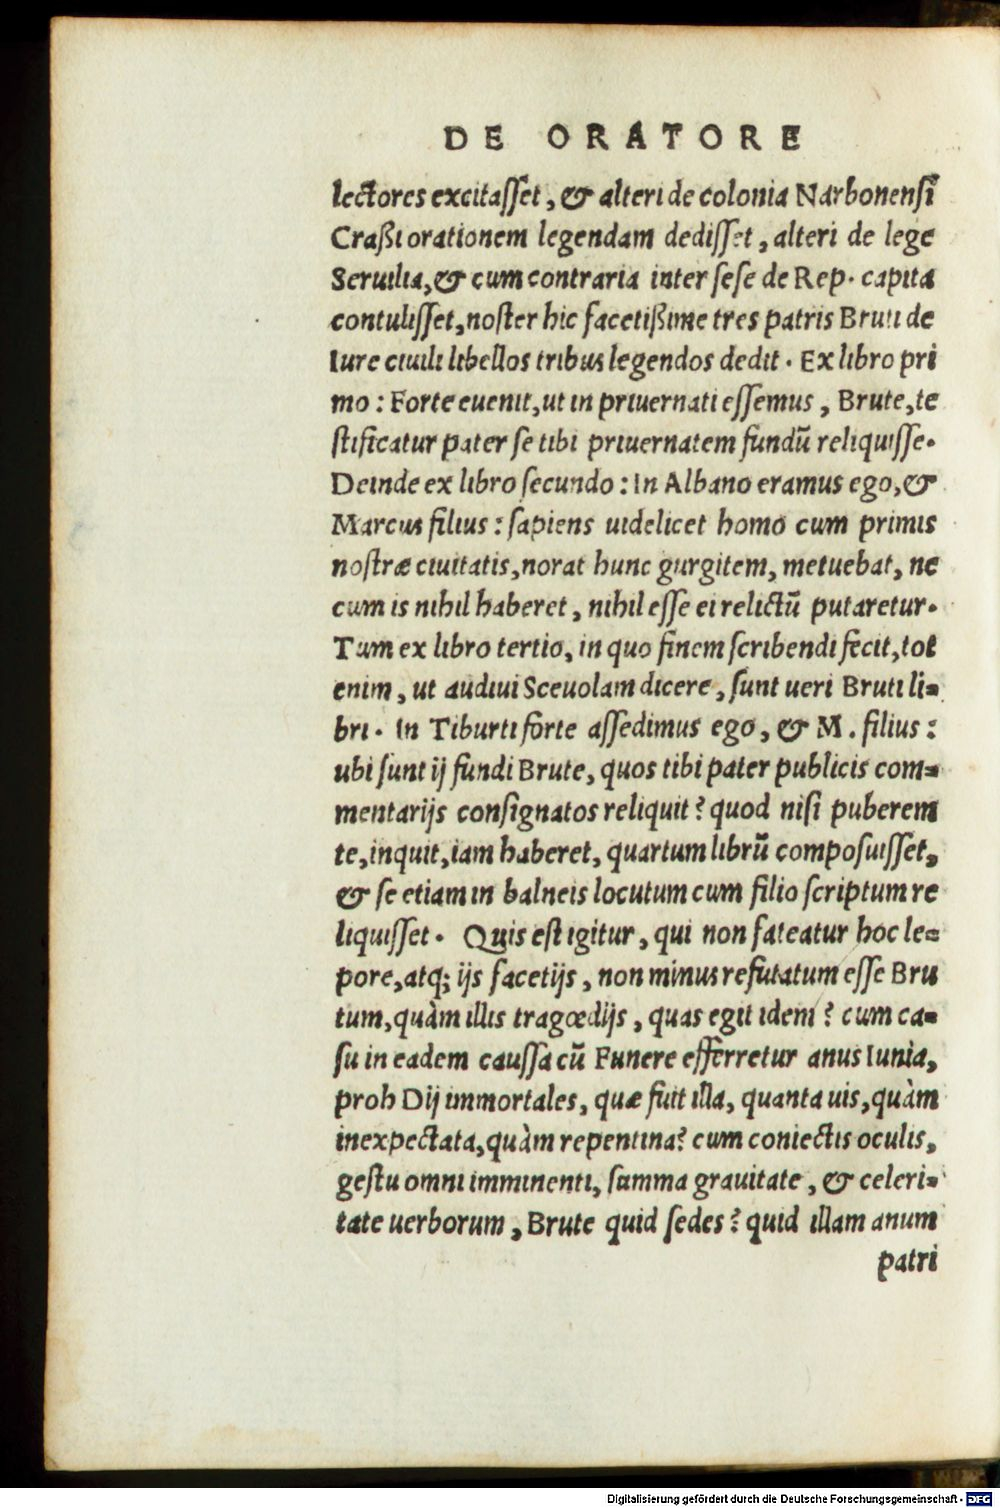 DE ORATORE
lectores excitaſſet, & alteri de colonia Narbonenſi
Craßi orationem legendam dediſſet, alteri de lege
Seruilia, & cum contraria inter ſeſe de Rep. capita
contuliſſet, noſter hic facetißime tres patris Bruti de
Iure ciuili libellos tribus legendos dedit. Ex libro pri
mo: Forte euenit, ut in priuernati eſſemus, Brute, te
ſtificatur pater ſe tibi priuernatem fundū reliquiſſe.
Deinde ex libro ſecundo: In Albano eramus ego, &
Marcus filius: ſapiens uidelicet homo cum primis
noſtræ ciuitatis, norat hunc gurgitem, metuebat, ne
cum is nihil haberet, nihil eſſe ei relictū putaretur.
Tum ex libro tertio, in quo finem ſcribendi fecit, tot
enim, ut audiui Sceuolam dicere, ſunt ueri Bruti li-
bri. In Tiburti forte aſſedimus ego, & M. filius:
ubi ſunt ij fundi Brute, quos tibi pater publicis com-
mentarijs conſignatos reliquit? quod niſi puberem
te, inquit, iam haberet, quartum librū compoſuiſſet,
& ſe etiam in balneis locutum cum filio ſcriptum re
liquiſſet. Quis eſt igitur, qui non fateatur hoc le-
pore, atq; ijs facetijs, non minus refutatum eſſe Bru
tum, quàm illis tragœdijs, quas egit idem? cum ca-
ſu in eadem cauſſa cū Funere efferretur anus Iunia,
proh Dij immortales, quæ fuit illa, quanta uis, quàm
inexpectata, quàm repentina? cum coniectis oculis,
geſtu omni imminenti, ſumma grauitate, & celeri-
tate uerborum, Brute quid ſedes? quid illam anum
patri
Digitalisierung gefördert durch die Deutsche Forschungsgemeinschaft - DFG